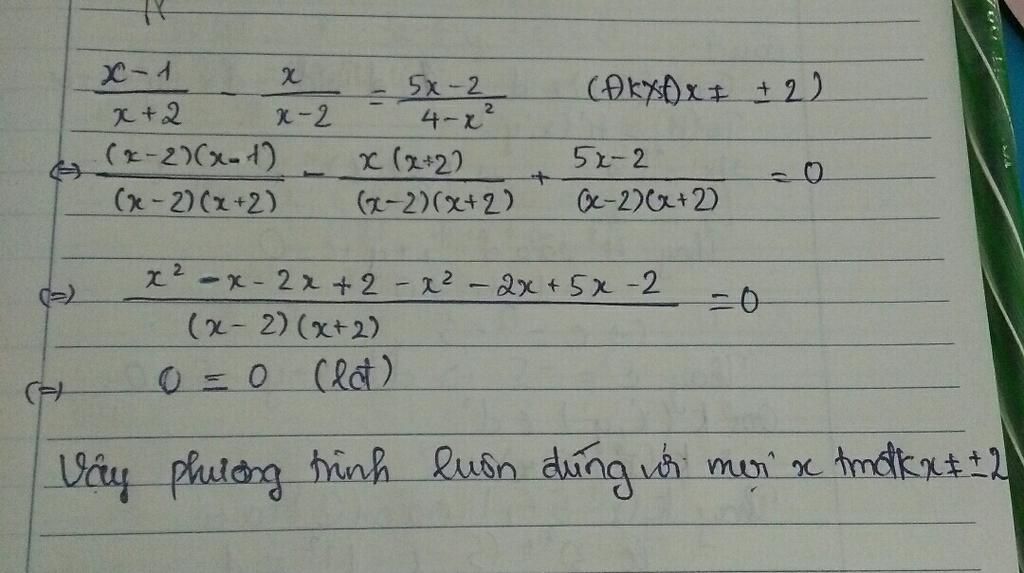 x-1/x+2 - x/x-2 = 5x-2/4-x² (ĐKXĐ x ≠ ±2)
<=> (x-2)(x-1)/(x-2)(x+2) - x(x+2)/(x-2)(x+2) + 5x-2/(x-2)(x+2) = 0
<=> x² - x - 2x + 2 - x² - 2x + 5x - 2/(x-2)(x+2) = 0
<=> 0 = 0 (lđt)
Vậy phương trình luôn đúng với mọi x tmđk x ≠ ±2